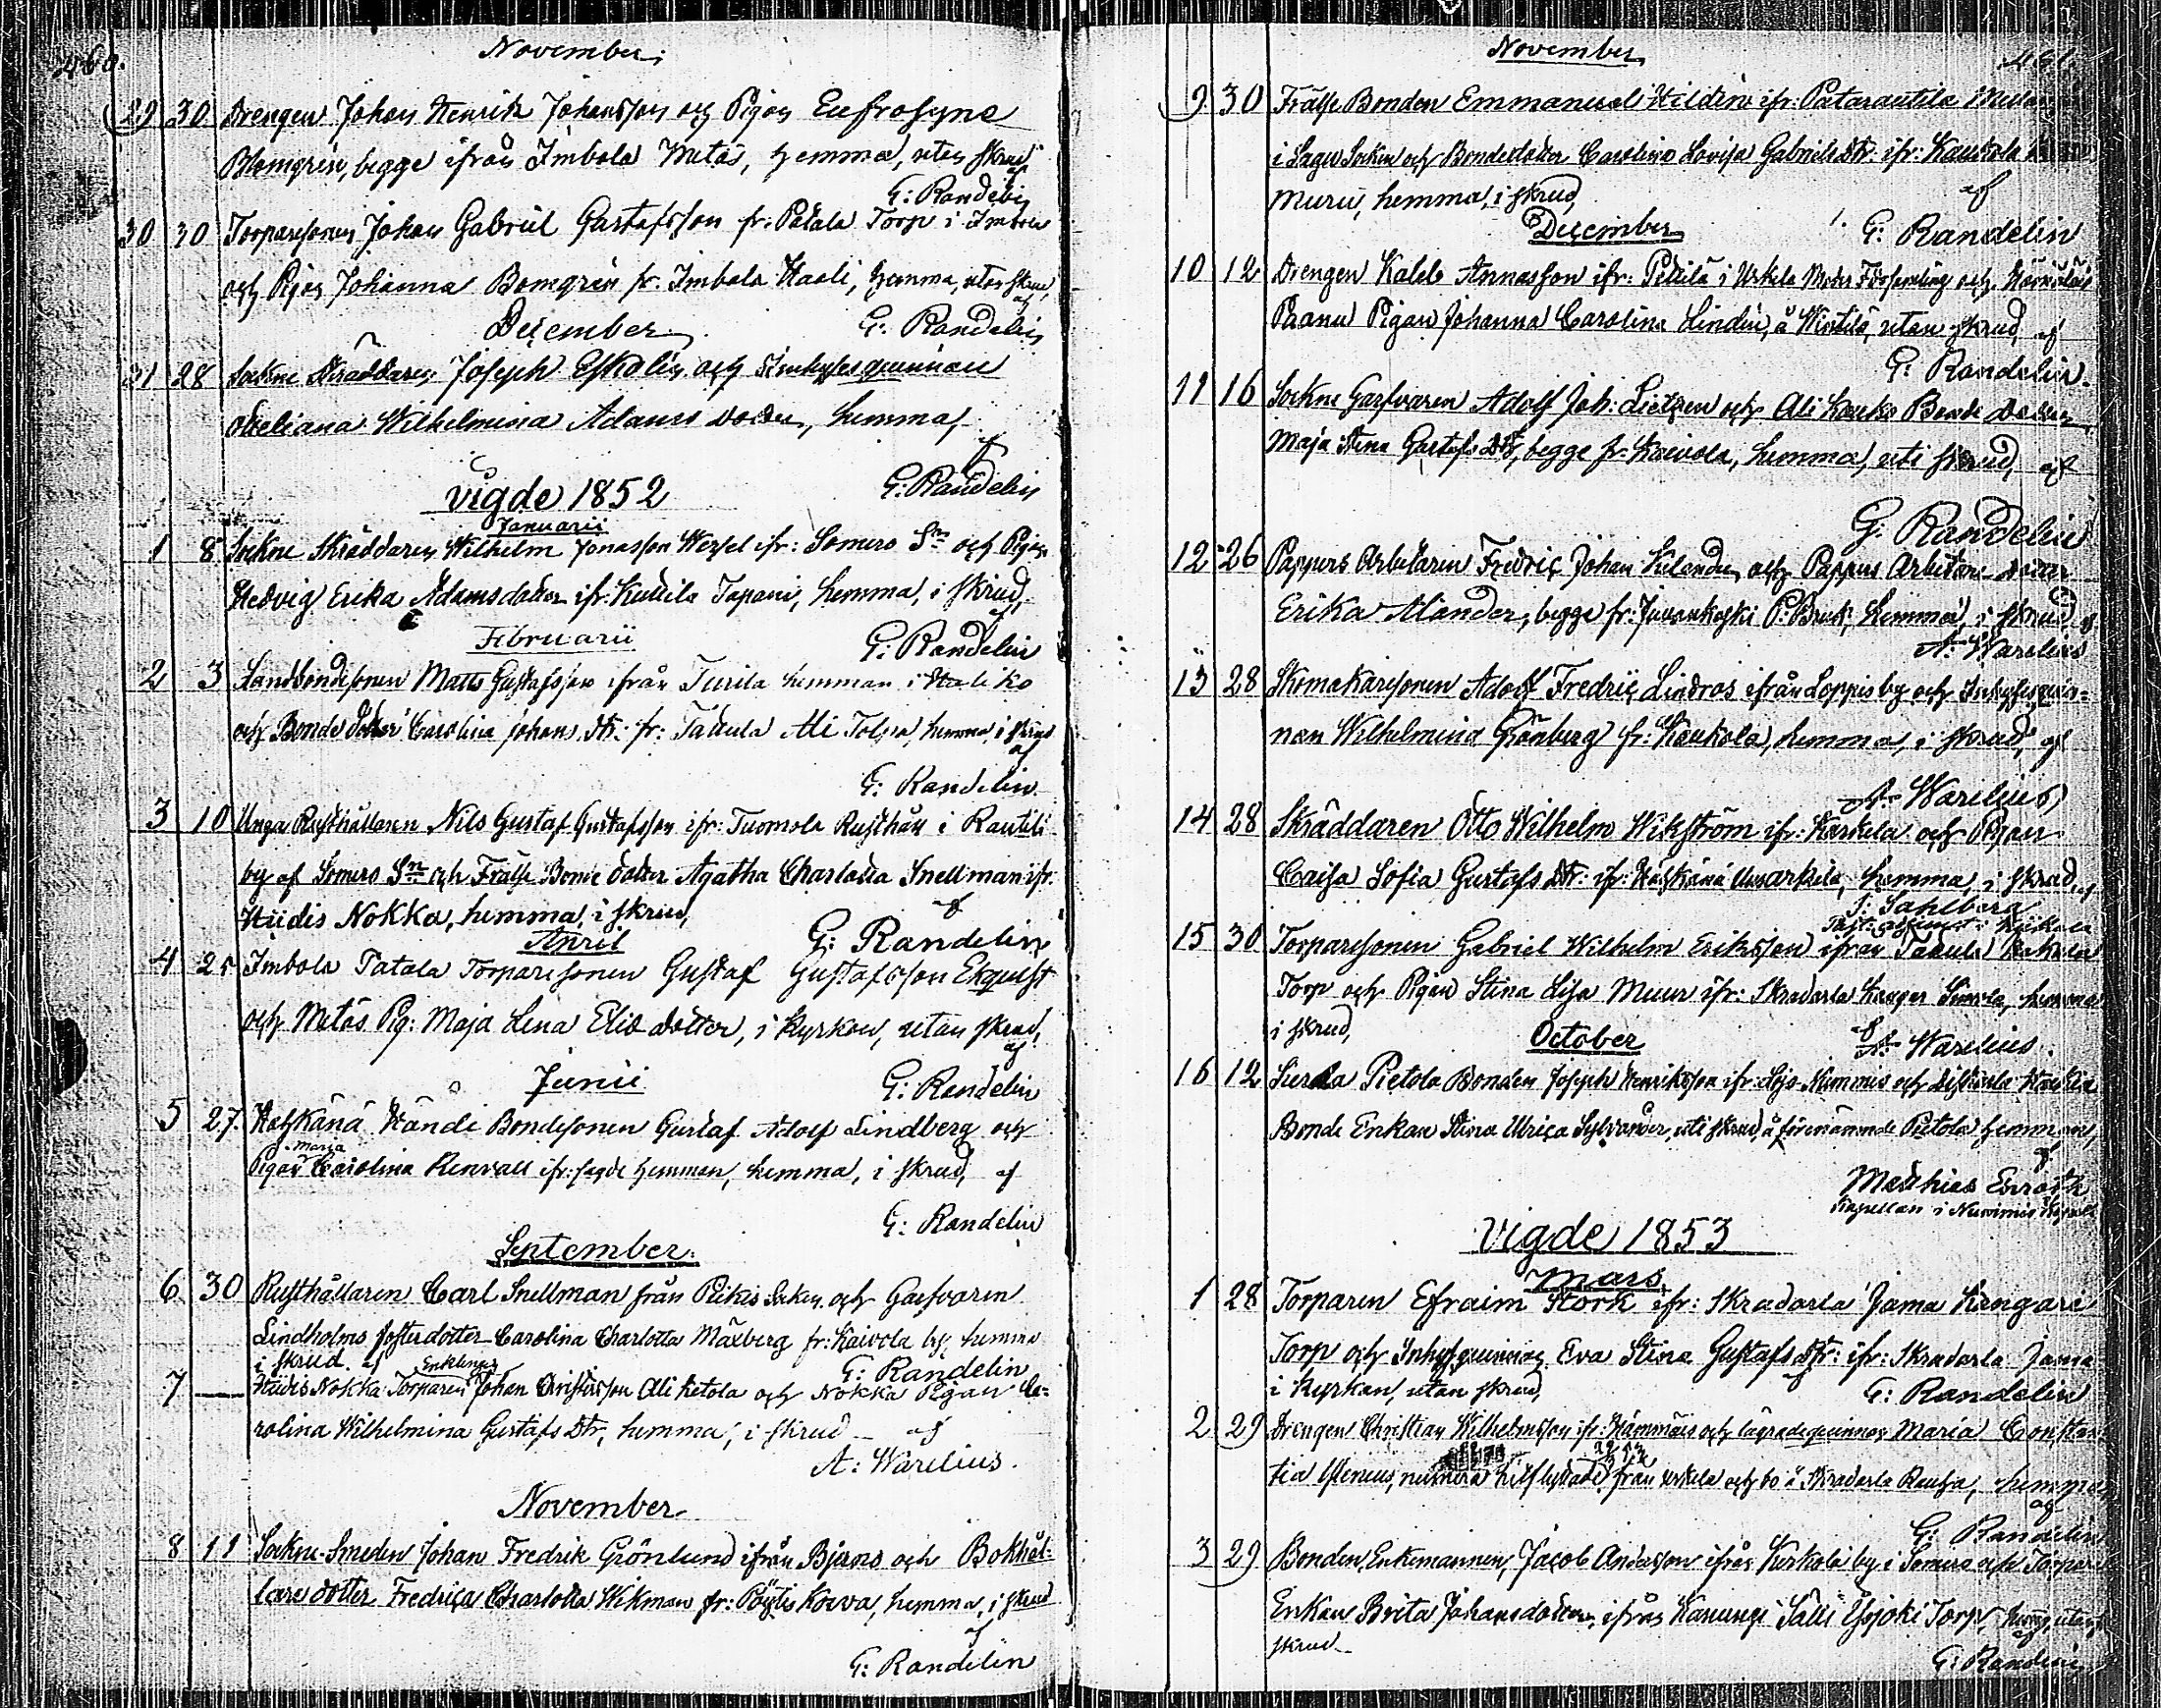 460.
November;
29 30 Drengen Johan Henrik Johansson och Pigan Eufrosyne
Blomgrén, begge ifrån Imbola Metås, hemma, utan skrud,
af
G: Randelin
30 30 Torparesonen Johan Gabriel Gustafsson fr: Patala Torp i Imbola
och Pigan Johanna Bomgrén fr. Imbola Haali, hemma, utan skrud,
af
December G: Randelin
31 28 Sockne Skräddaren Joseph Eskolin och Inhyses qvinnan
Wilhelmina Adams dotter, hemma,
af
G: Randelin
Vigde 1852
Januarii
1 8 Sockne Skräddaren Wilhelm Jonasson Wessel ifr: Somero Sn och Pigan
Hedvig Erika Adamsdotter ifr. Kuttila Tapani, hemma, i skrud,
af
Februarii G: Randelin
2 3 Landbondesonen Matts Gustafsson ifrån Turila hemman i
och Bonde dotter Carolina Johans Dtr: fr: Talkula Ali Tolpa, hemma, i skrud
af
G: Randelin
3 10 Unga Rusthållaren Nils Gustaf Gustafsson ifr: Tuomola Rusthåll i Rautila
by af Somero Sn och Frälse Bonde dotter Agatha Charlotta Snellman ifr.
Hiidis Nokka, hemma, i skrud, af
April G: Randelin
4 25 Imbola Patala Torparesonen Gustaf Gustafsson Ekquist
och Metås Pig: Maja Lena Elis dotter, i kyrkan, utan skrud,
af
Junii G: Randelin
5 27 Kändi Bondesonen Gustaf Adolf Lindberg och
Maria
Pigan Carolina Renvall ifr: sagde hemman, hemma, i skrud, af
G: Randelin
September
6 30 Rusthållaren Carl Snellman från Pikis Socken och Garfvaren
Lindholms fosterdotter Carolina Charlotta Maxberg fr: Kaivola by, hemma
i skrud. af G: Randelin
Enklingen
7 — Hiidis Nokka Torparen Johan Christersson Ali Ketola och Nokka Pigan Ca-
rolina Wilhelmina Gustafs Dtr, hemma, i skrud – af
A: Warelius.
November
8 11 Sockne Smeden Johan Fredrik Grönlund ifrån Bjerno och Bokhål-
lare dotter Fredrica Charlotta Wikman fr: Pöytis Korva, hemma, i skrud
af
G: Randelin
November
461.
9 30 Frälse Bonden Emmanuel Hildén ifr: Patarautila
i Sagu Socken och Bondedotter Carolina Lovisa Gabriels Dtr: ifr: Kaukola
Muru, hemma, i skrud, af
December G: Randelin
10 12 Drengen Kaleb Annasson ifr: Pettilä i Uskela Moder Församling och
Pigan Johanna Carolina Lindén, å Wintilä, utan skrud, af
G: Randelin
11 16 Sockne Garfvaren Adolf Joh: Lietzen och Ali Kouko Bonde Dotter
Maja Stina Gustafs Dtr, begge fr. Kaivola, hemma, uti skrud, af
G: Randelin
12 26 Pappers Arbetaren Fredric Johan Kilander och Pappers Arbetare dotter
Erika Alander, begge fr: Juvankoski P: Bruk, hemma, i skrud af
A: Warelius
13 28 Skomakaresonen Adolf Fredric Lindros ifrån Loppis by och Inhysesqvin-
nan Wilhelmina Grönberg fr: Kaukola, hemma, i skrud, af
A: Warelius
14 28 Skräddaren Otto Wilhelm Wikström ifr: Karkela och Pigan
Caisa Sofia Gustafs Dtr: ifr: hemma, i skrud, af
J. Sahlberg
Past. adjunct i Kiikala
15 30 Torparesonen Gabriel Wilhelm Eriksson ifrån Talkula
Torp och Pigan Stina Lisa Muur ifr: Skradarla hemma
i skrud, af
October A: Warelius
16 12 Pietola Bonden Joseph Henriksson ifr: Lojo Nummis och
Bonde Enkan Stina Ulrica Sylvander, uti skrud, å förenämnde Pietola hemman,
af
Mathias Elfrooth
Kapellan i Nummis
Vigde 1853
Mars
1 28 Torparen Efraim Stork ifr: Skradarla Jama Kangari
Torp och Inhysqvinnan Eva Stina Gustafs Dtr: ifr: Skradarla Jama
i kyrkan, utan skrud, af G: Randelin
2 29 Drengen Christian Wilhelmsson ifr: och lägradeqvinnan Maria Constan-
tia från Uskela och bo å Skradarla hemma,
af
G: Randelin
3 29 Bonden, Enkemannen, Jacob Andersson ifrån Kerkola by i Somero och Torpare
Enkan Brita Johansdotter, ifrån Kanungi Sälli Ylisjoki Torp, hema, utan
skrud af
G: Randelin